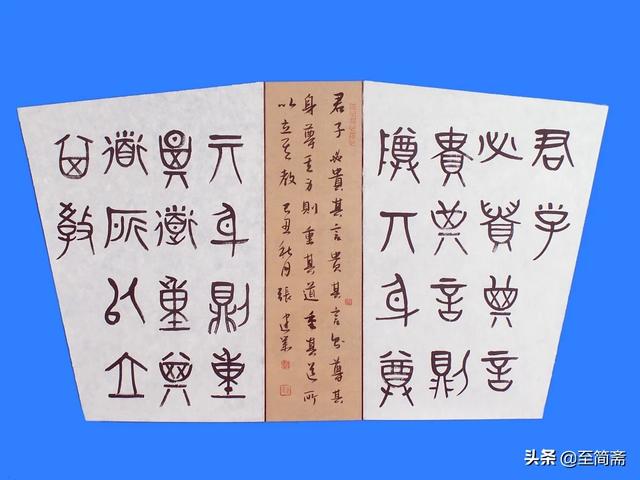 君子
必貴其言
貴其言則
尊其身尊
其身則重
其道重其
道所以立
其教
君子必貴其言貴其言則尊其
身尊其身則重其道重其道所
以立其教 己丑秋月 張建
头条 @至简斋